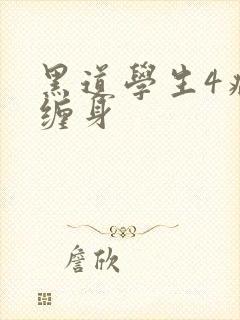 黑道學生4
缠身
詹欣